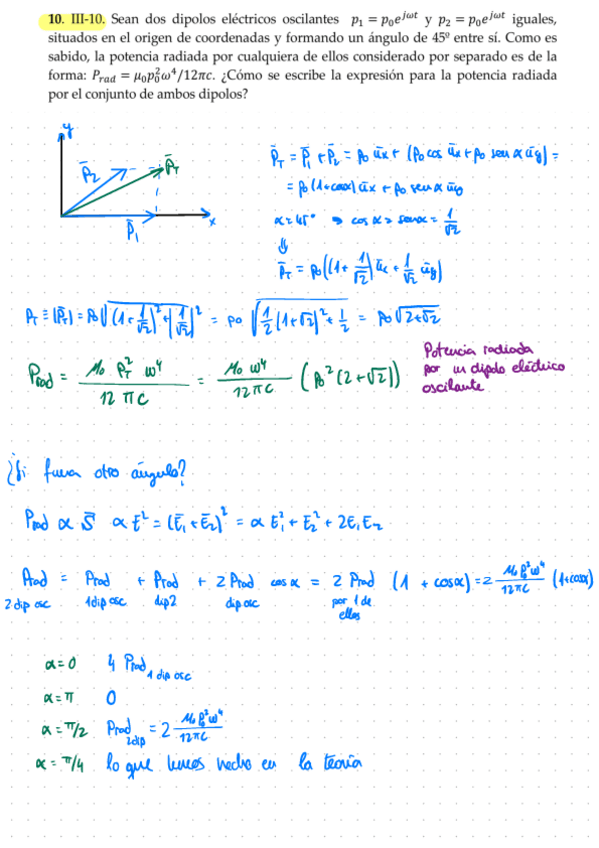 10. III-10. Sean dos dipolos eléctricos oscilantes p₁ = p₀e^{jωt} y p₂ = p₀e^{jωt} iguales,
situados en el origen de coordenadas y formando un ángulo de 45º entre sí. Como es
sabido, la potencia radiada por cualquiera de ellos considerado por separado es de la
forma: P_rad = μ₀p₀²ω⁴/12πc. ¿Cómo se escribe la expresión para la potencia radiada
por el conjunto de ambos dipolos?
y
P̄₂ P̄T
P̄₁ x
P̄T = P̄₁ + P̄₂ = p₀ ūx + (p₀ cos ūx + p₀ sen α ūy) =
= p₀ (1+cosα) ūx + p₀ sen α ūy
α = 45° ⇒ cos α = sen α = 1/√2
⇓
P̄T = p₀((1 + 1/√2) ūx + 1/√2 ūy)
PT ≡ |P̄T| = p₀ √((1 + 1/√2)² + |1/√2|²) = p₀ √(1/2 (1+√2)² + 1/2) = p₀ √(2+√2)
Prad = μ₀ PT² ω⁴ / 12 π c = μ₀ ω⁴ / 12 π c (p₀² (2+√2))
Potencia radiada
por un dipolo eléctrico
oscilante
¿Si fuera otro ángulo?
Prad α S̄ α E² = (Ē₁ + Ē₂)² = α E₁² + E₂² + 2E₁E₂
Prad = Prad + Prad + 2 Prad cos α = 2 Prad (1 + cosα) = 2 μ₀ p₀² ω⁴ / 12πc (1+cosα)
2 dip osc 1 dip osc dip2 dip osc por 1 de
ellos
α = 0 4 Prad 1 dip osc
α = π 0
α = π/2 Prad 2dip = 2 μ₀ p₀² ω⁴ / 12πc
α = π/4 lo que hemos hecho en la teoría